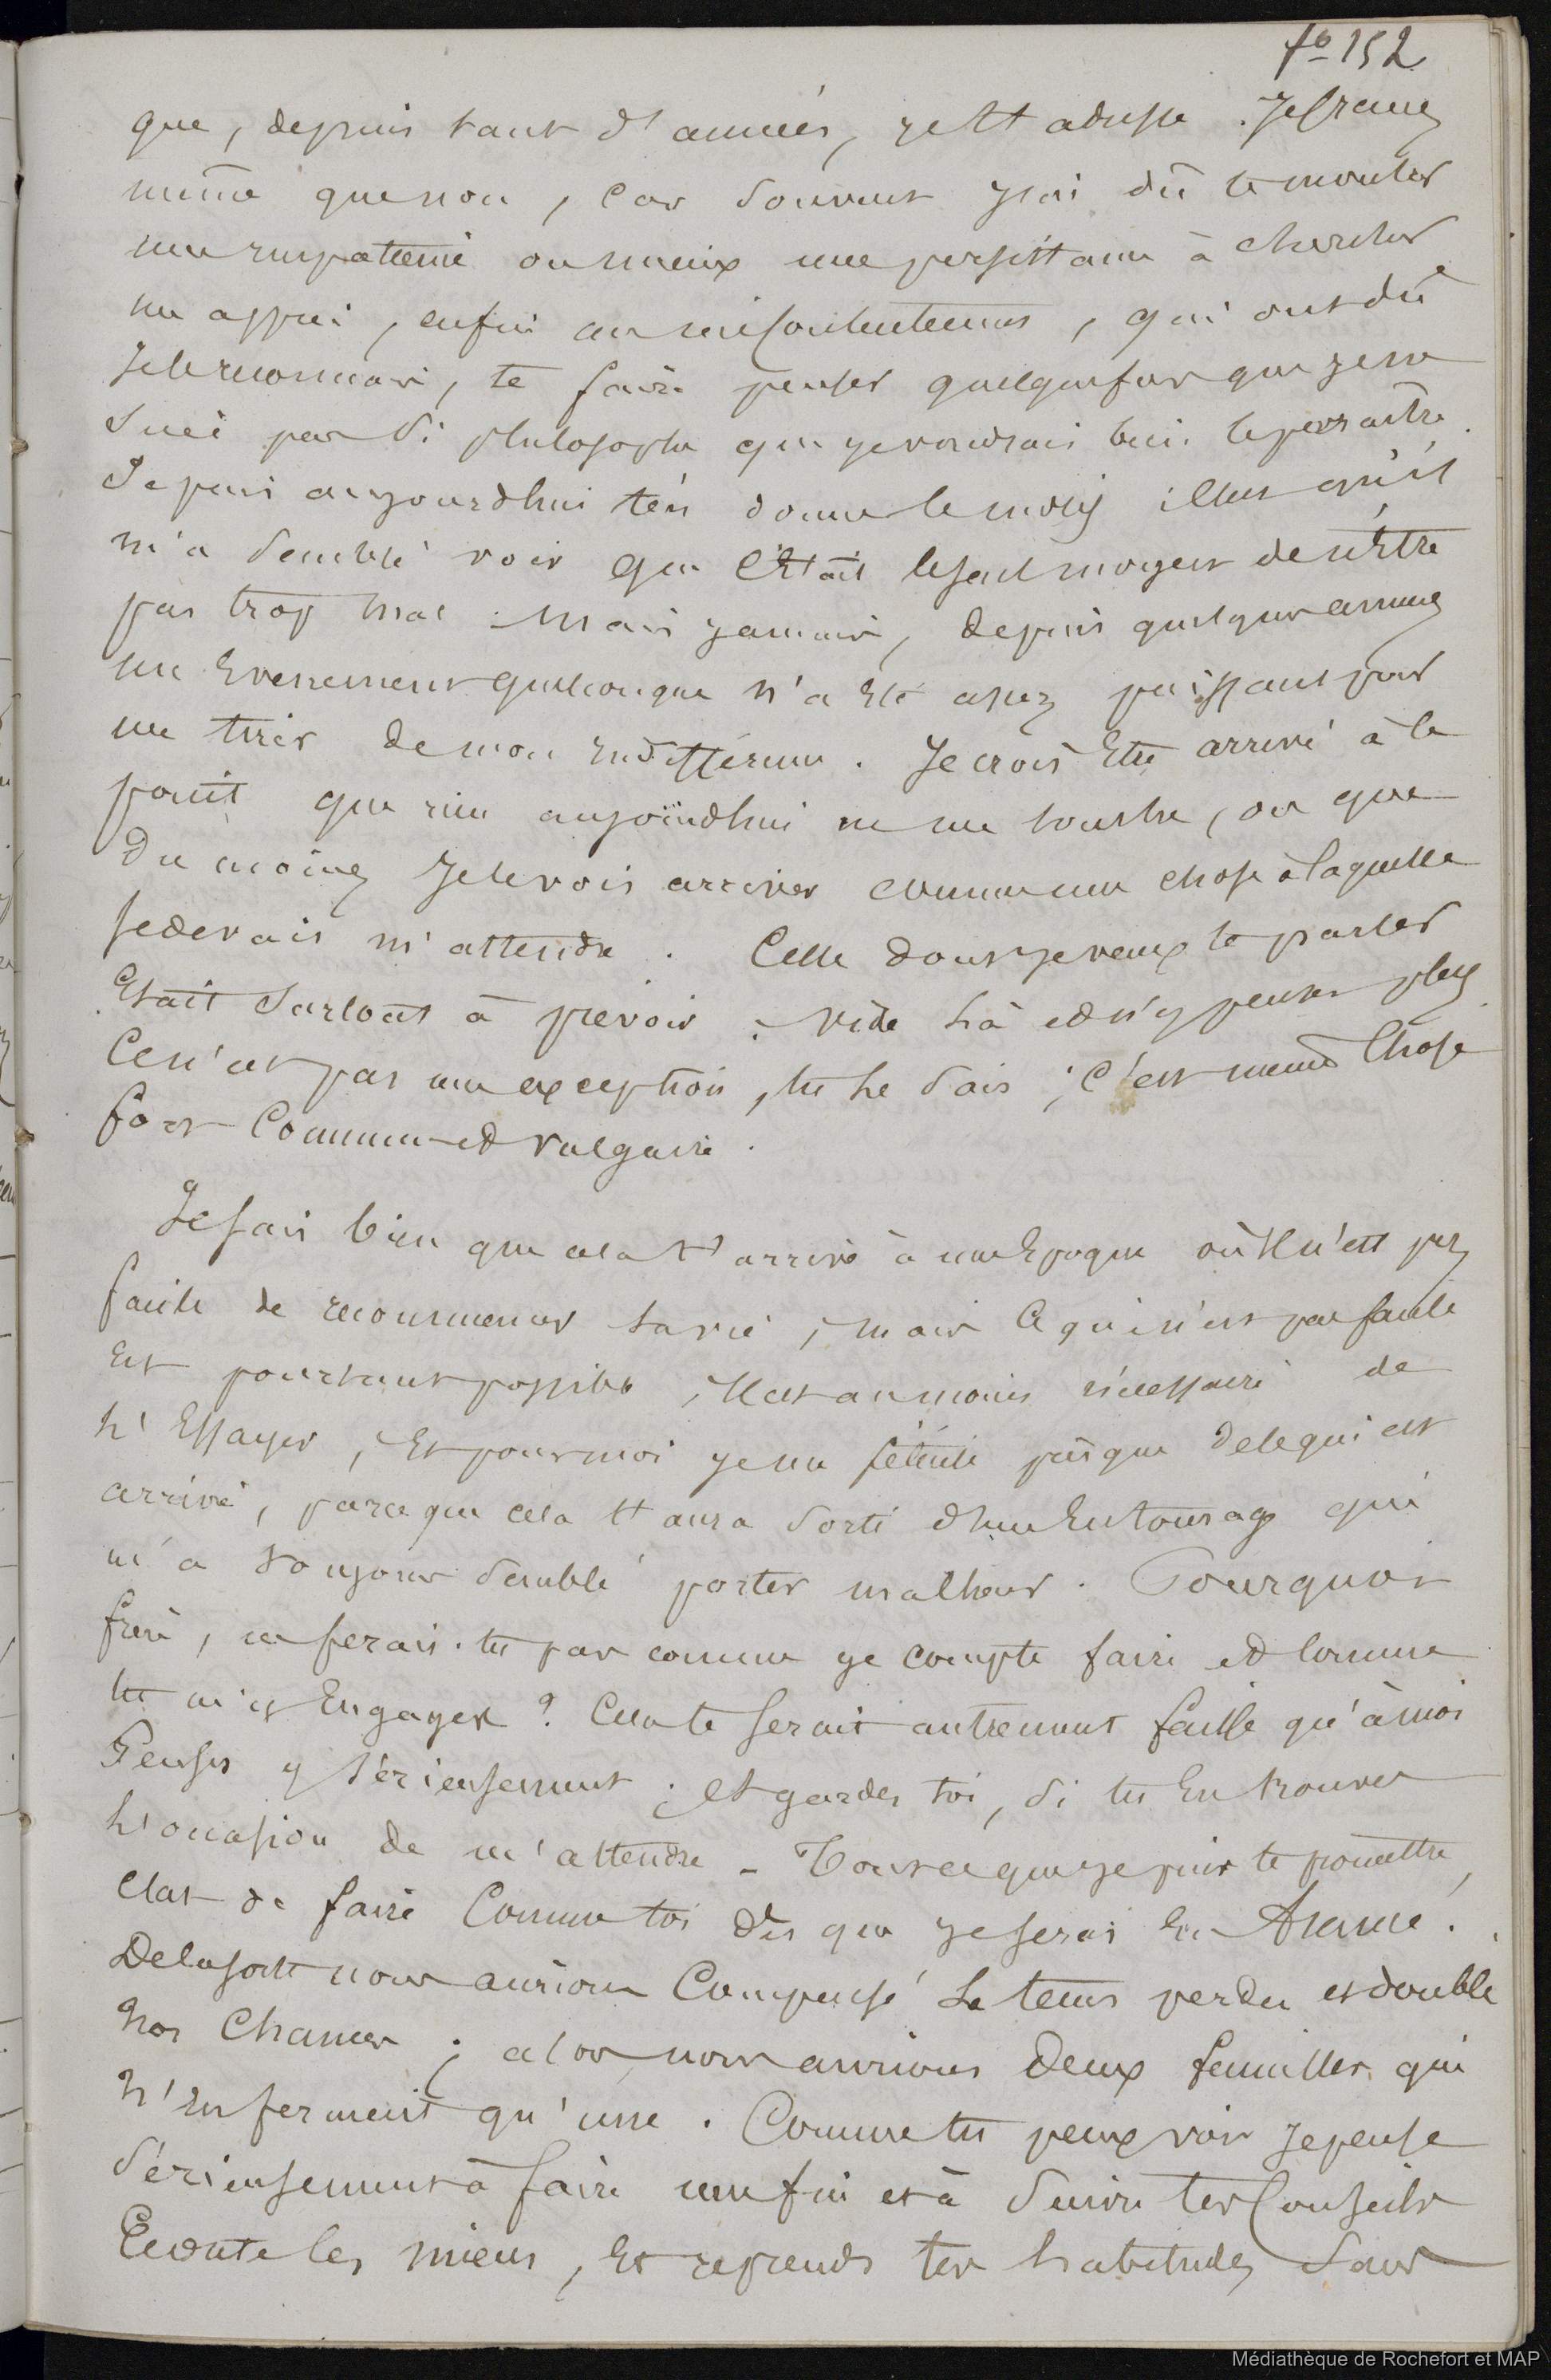 fo 152
que, depuis tant d'années, je t'adresse. Je crains
même que non, car souvent j'ai dû te montrer
une impatience ou mieux une persistance à chercher
un appui, enfin un mécontentement, qui ont dû
je le reconnais, te faire penser quelquefois que je ne
suis pas si philosophe que je voudrais bien le paraître.
Je puis aujourdhui t'en donner le motif c'est qu'il
m'a semblé voir que c'était le seul moyen de n'être
pas trop mal. Mais jamais, depuis quelques années
un évenement quelconque n'a été assez puissant pour
me tirer de mon indifférence. Je crois être arrivé à ce
point que rien aujourdhui ne me touche, ou que
du moins je le vois arriver comme une chose à laquelle
je devais m'attendre. Celle dont je veux te parler
était surtout à prévoir; et n'y penses plus.
Ce n'est pas une exception, tu le sais; c'est même chose
fort commune et vulgaire.
Je sais bien que cela t'arrive à une époque où il n'est pas
facile de recommencer sa vie, mais ce qui n'est pas facile
est pourtant possible, il est au moins nécessaire de
l'essayer, et pour moi je me félicite presque de ce qui est
arrivé, parce que cela t'aura sorti d'un entourage qui
m'a toujours semblé porter malheur. Pourquoi
frère, ne ferais-tu pas comme je compte faire et comme
tu m'y engages? Cela te serait autrement facile qu'à moi
Penses y sérieusement; et gardes toi, si tu en trouves
l'occasion de m'attendre - Tout ce que je puis te promettre,
c'est de faire comme toi dès que je serai en France.
De la sorte nous aurions compensé le tems perdu et doublé
nos chances; alors nous aurions deux familles qui
n'en feraient qu'une. Comme tu peux voir je pense
sérieusement à faire une fin et à suivre tes conseils
Ecoute les miens, et reprends tes habitudes sans
Médiathèque de Rochefort et MAP